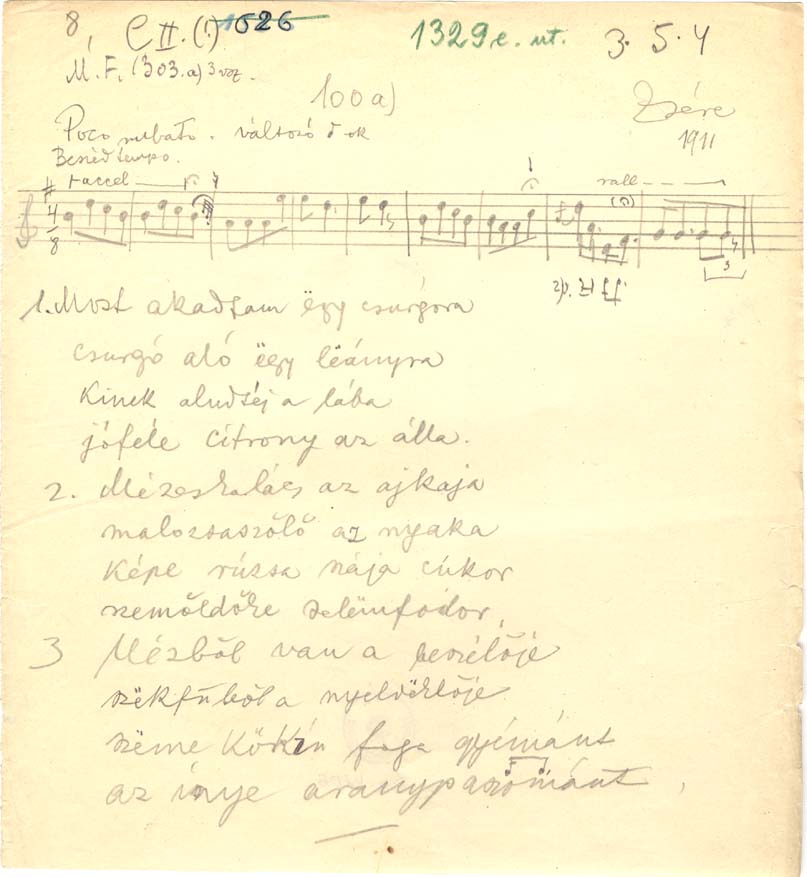 8, C II. (!) 1526 1329 e. ut. 3. 5. 4
M. F. (303.a) 3 vsz.
100a)
Zsére
1911
Poco rubato. változó ok
Beszédtempo.
accel rall
4/8
3
1. Most akadtam ëgy csurgóra
csurgó aló ëgy lëányra
Kinek aludtéj a lába
jófele citrony az álla.
2. Mézeskalács az ajkaja
malozsaszőlő az nyaka
Képe rúzsa szája cúkor
szemőldőke selëmfodor,
3 Mézből van a beszélője
székfűből a nyelvëllője
szëme Kökén foga gyémánt
az ínye aranypaszománt,